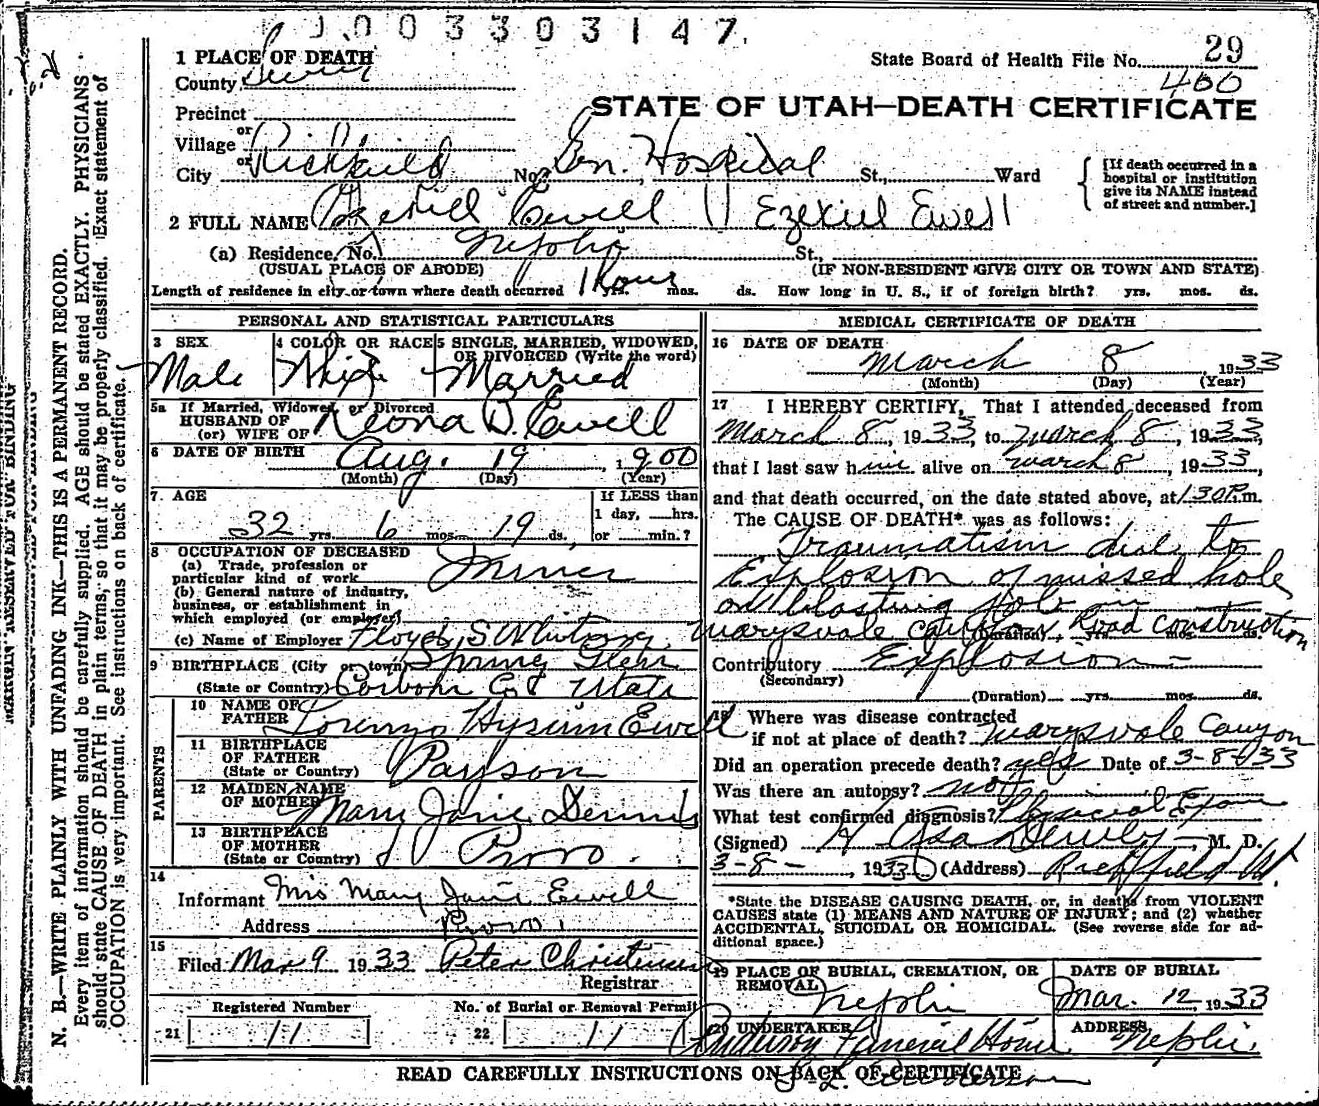 0003303147
1 PLACE OF DEATH
County Sevier
State Board of Health File No. 29
400
STATE OF UTAH—DEATH CERTIFICATE
Precinct
or
Village
or
City Richfield No. Gen. Hospital St., Ward
[If death occurred in a hospital or institution give its NAME instead of street and number.]
2 FULL NAME Ezekiel Ewell Ezekiel Ewell
(a) Residence, No. Nephi St.,
(USUAL PLACE OF ABODE) (IF NON-RESIDENT GIVE CITY OR TOWN AND STATE)
Length of residence in city or town where death occurred 1 hour yrs. mos. ds. How long in U. S., if of foreign birth? yrs. mos. ds.
PERSONAL AND STATISTICAL PARTICULARS
3 SEX 4 COLOR OR RACE 5 SINGLE, MARRIED, WIDOWED, OR DIVORCED (Write the word)
Male White Married
5a If Married, Widowed or Divorced
HUSBAND OF
(or) WIFE OF Leona B. Ewell
6 DATE OF BIRTH Aug. 19, 1900
(Month) (Day) (Year)
7. AGE If LESS than
1 day, hrs.
32 yrs. 6 mos. 19 ds. or min.?
8 OCCUPATION OF DECEASED
(a) Trade, profession or
particular kind of work Miner
(b) General nature of industry,
business, or establishment in
which employed (or employer)
(c) Name of Employer Floyd S Whiting
9 BIRTHPLACE (City or town) Spring Glen
(State or Country) Carbon Co Utah
PARENTS
10 NAME OF
FATHER Lorenzo Hysium Ewell
11 BIRTHPLACE
OF FATHER
(State or Country) Payson
12 MAIDEN NAME
OF MOTHER Mary Jane Dennis
13 BIRTHPLACE
OF MOTHER
(State or Country) Provo.
14
Informant Mrs Mary Jane Ewell
Address Provo.
15
Filed Mar 9 1933 Peter Christensen
Registrar
Registered Number No. of Burial or Removal Permit
21 11 22 11
MEDICAL CERTIFICATE OF DEATH
16 DATE OF DEATH
March 8, 1933
(Month) (Day) (Year)
17 I HEREBY CERTIFY, That I attended deceased from
March 8, 1933, to March 8, 1933,
that I last saw him alive on March 8, 1933,
and that death occurred, on the date stated above, at 1:30 P.m.
The CAUSE OF DEATH* was as follows:
Traumatism due to
Explosion of missed hole
on blasting hole in
Marysvale canyon Road Construction
(Duration) yrs. mos. ds.
Contributory Explosion
(Secondary)
(Duration) yrs. mos. ds.
18 Where was disease contracted
if not at place of death? Marysvale Canyon
Did an operation precede death? yes Date of 3-8-33
Was there an autopsy? no
What test confirmed diagnosis? Physical Exam
(Signed) H Asa Dewey, M. D.
3-8-, 1933 (Address) Richfield Ut
*State the DISEASE CAUSING DEATH, or, in deaths from VIOLENT
CAUSES state (1) MEANS AND NATURE OF INJURY; and (2) whether
ACCIDENTAL, SUICIDAL OR HOMICIDAL. (See reverse side for ad-
ditional space.)
19 PLACE OF BURIAL, CREMATION, OR REMOVAL DATE OF BURIAL
Nephi Mar. 12, 1933
20 UNDERTAKER ADDRESS
Anderson Funeral Home Nephi.
READ CAREFULLY INSTRUCTIONS ON BACK OF CERTIFICATE
MARGIN RESERVED FOR BINDING
N. B.—WRITE PLAINLY WITH UNFADING INK—THIS IS A PERMANENT RECORD.
Every item of information should be carefully supplied. AGE should be stated EXACTLY. PHYSICIANS
should state CAUSE OF DEATH in plain terms, so that it may be properly classified. Exact statement of
OCCUPATION is very important. See instructions on back of certificate.